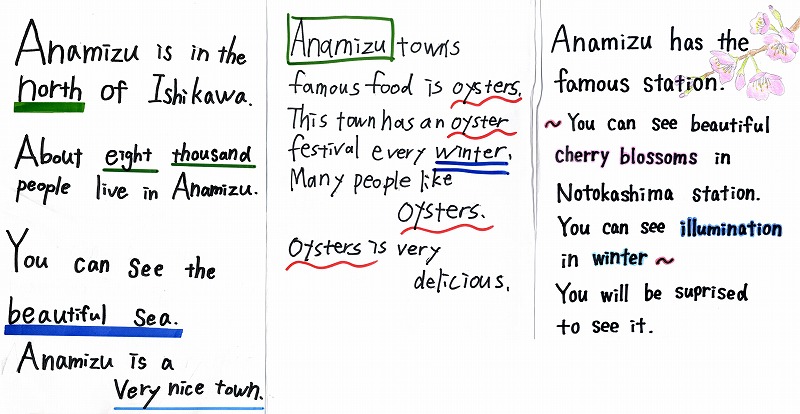 Anamizu is in the
north of Ishikawa.
About eight thousand
people live in Anamizu.
You can see the
beautiful sea.
Anamizu is a
Very nice town.
Anamizu towns
famous food is oysters.
This town has an oyster
festival every winter.
Many people like
oysters.
Oysters is very
delicious.
Anamizu has the
famous station.
~ You can see beautiful
cherry blossoms in
Notokashima station.
You can see illumination
in winter ~
You will be suprised
to see it.